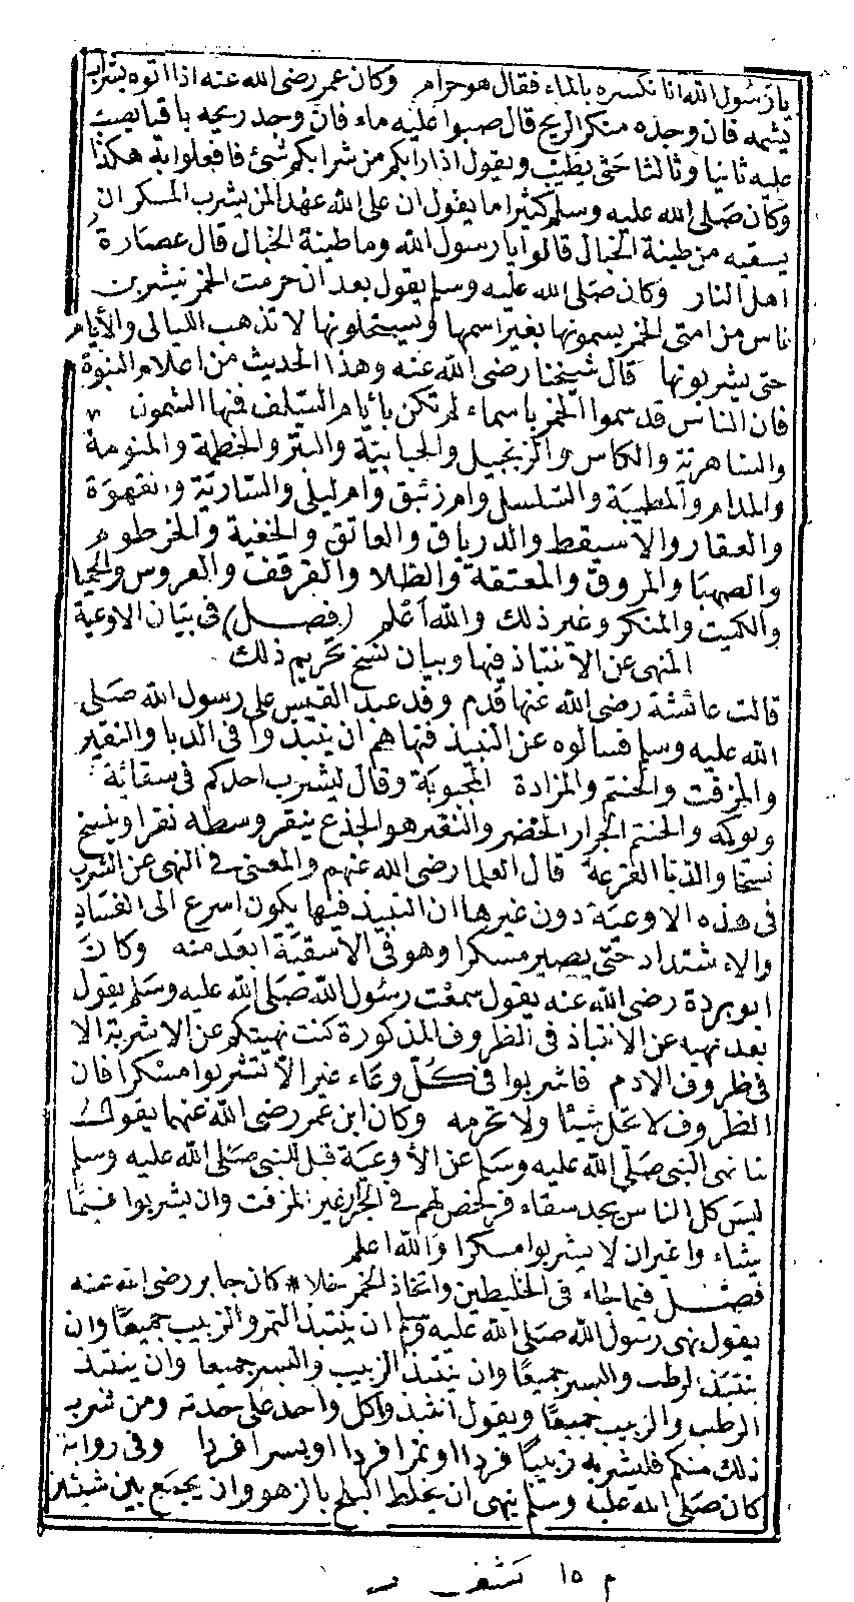 يا رسول الله انا نكسره بالماء فقال هو حرام وكان عمر رضى الله عنه اذا اتوه بشراب
يشمه فان وجده منكر الريح قال صبوا عليه ماء فان وجد ريحه باقيا يصب
عليه ثانيا وثالثا حتى يطيب ويقول اذا رابكم من شرابكم شئ فافعلوا به هكذا
وكان صلى الله عليه وسلم كثيرا ما يقول ان على الله عهدا لمن يشرب المسكر ان
يسقيه من طينة الخبال قالوا يا رسول الله وما طينة الخبال قال عصارة
اهل النار وكان صلى الله عليه وسلم يقول بعد ان حرمت الخمر ليشربن
ناس من امتى الخمر يسمونها بغير اسمها ويستحلونها لا تذهب الليالى والأيام
حتى يشربونها قال شيخنا رضى الله عنه وهذا الحديث من اعلام النبوة
فان الناس قد سموا الخمر باسماء لم تكن بأيام السلف فمنها الشمول
والساهرية والكاس والزنجبيل والجبابية والبتر والخطمة والمنومة
والمدام والمطيبة والسلسل وام زنبق وام ليلى والسارية والقهوة
والعقار والاسيقط والدرياق والعاتق والخفية والخرطوم
والصهبا والمروق والمعتقة والطلا والقرقف والعروس والحميا
والكميت والمنكر وغير ذلك والله أعلم (فصل) فى بيان الاوعية
المنهى عن الانتباذ فيها وبيان نسخ تحريم ذلك
قالت عائشة رضى الله عنها قدم وفد عبد القيس على رسول الله صلى
الله عليه وسلم فسألوه عن النبيذ فنهاهم ان ينبذوا فى الدبا والنقير
والمزفت والحنتم والمزادة المجبوبة وقال ليشرب احدكم فى سقائه
ويوكه والحنتم الجرار الخضر والنقير هو الجذع ينقر وسطه نقرا وينسخ
نسخا والدبا القرعة قال العلما رضى الله عنهم والمعنى فى النهى عن الشرب
فى هذه الاوعية دون غيرها ان النبيذ فيها يكون اسرع الى الفساد
والاشتداد حتى يصير مسكرا وهو فى الاسقية ابعد منه وكان
ابو بردة رضى الله عنه يقول سمعت رسول الله صلى الله عليه وسلم يقول
بعد نهيه عن الانتباذ فى الظروف المذكورة كنت نهيتكم عن الاشربة الا
فى ظروف الادم فاشربوا فى كل وعاء غير الا تشربوا مسكرا فان
الظروف لا تحل شيئا ولا تحرمه وكان ابن عمر رضى الله عنهما يقول
لما نهى النبى صلى الله عليه وسلم عن الأوعية قيل للنبى صلى الله عليه وسلم
ليس كل الناس يجد سقاء فرخص لهم فى الجرار غير المزفت وان يشربوا فيما
يشاء واغير ان لا يشربوا مسكرا والله اعلم
فصل فيما جاء فى الخليطين واتخاذ الخمر خلا * كان جابر رضى الله عنه
يقول نهى رسول الله صلى الله عليه وسلم ان ينتبذ التمر والزبيب جميعا وان
ينتبذ الرطب والبسر جميعا وان ينتبذ الزبيب والبسر جميعا وان ينتبذ
الرطب والزبيب جميعا ويقول انتبذوا كل واحد على حدته ومن شرب
ذلك منكم فليشربه زبيبا فردا او تمرا فردا او بسرا فردا وفى رواية
كان صلى الله عليه وسلم ينهى ان يخلط البلح بالزهو وان يجمع بين شيئين
م ١٥ كشف